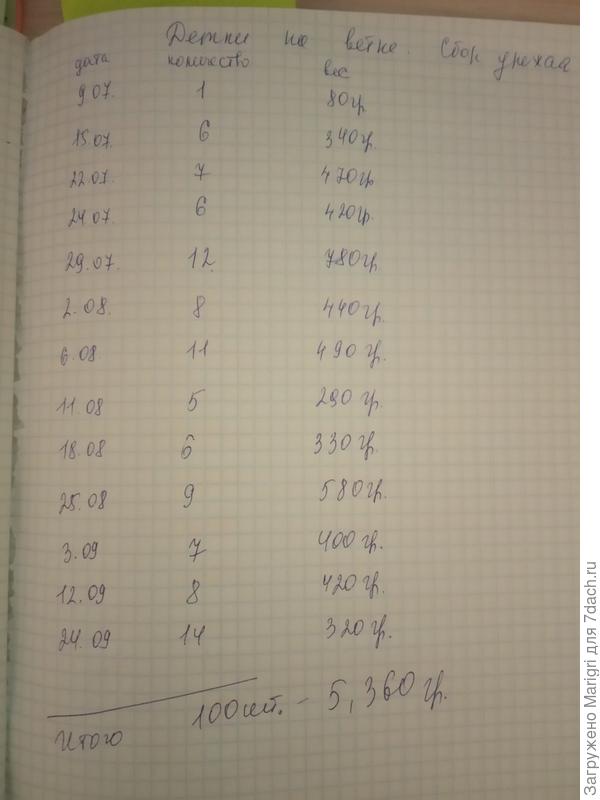 Детки на ветке. Сбор урожая
дата количество вес
9 07. 1 80гр.
15.07. 6 340гр.
22.07. 7 470гр
24 07. 6 420гр.
29.07. 12. 780гр
2.08. 8 440гр.
6.08 11 490 гр.
11.08 5 290 гр.
18.08 6 330гр.
25.08 9 580гр.
3.09 7 400 гр.
12.09 8 420 гр.
24.09 14 320гр.
Итого 100шт. - 5,360гр.
Загружено Marigri для 7dach.ru